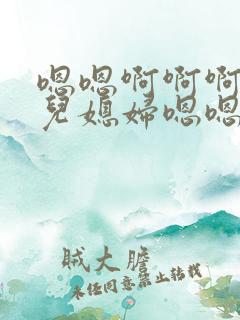 嗯嗯啊啊啊
兒媳婦嗯嗯
賊大膽
未经同意禁止转载